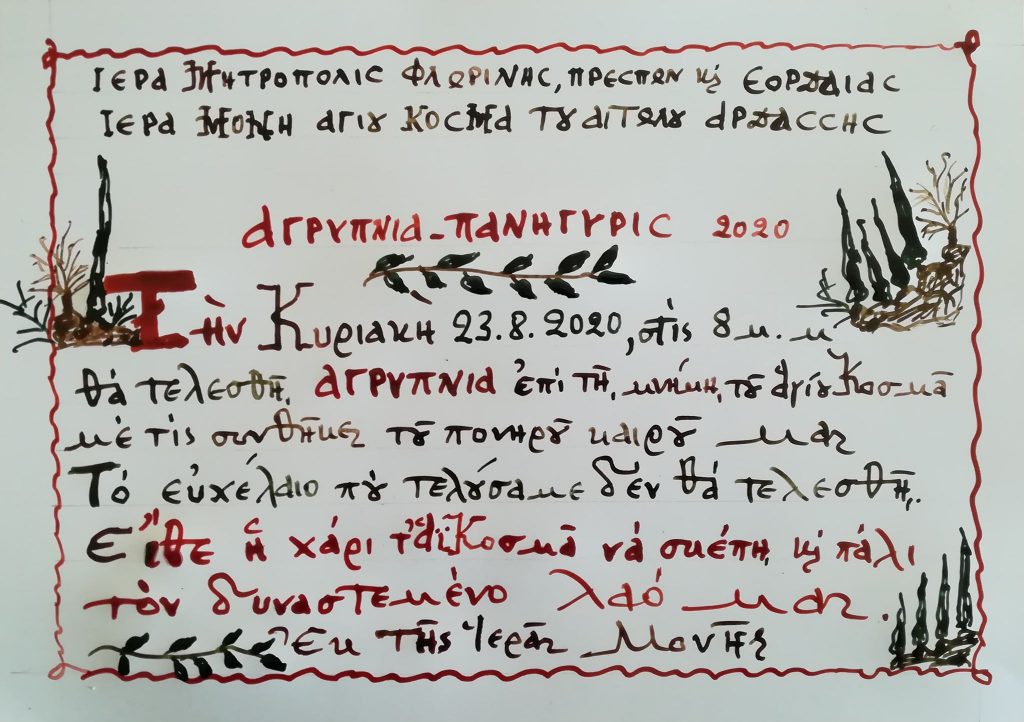 ΙΕΡΑ ΜΗΤΡΟΠΟΛΙC ΦΛΩΡΙΝΗC, ΠΡΕCΠΩΝ ϗ ΕΟΡΔΑΙΑC
ΙΕΡΑ ΜΟΝΗ ΑΓΙȢ ΚΟCΜΑ ΤȢ ΑΙΤΩΛȢ ΑΡΔΑCCHC
ΑΓΡΥΠΝΙΑ-ΠΑΝΗΓΥΡΙC 2020
Τὴν Κυριακη 23.8.2020, στὶς 8 μ.μ
θὰ τελεσθῆ, ΑΓΡΥΠΝΙΑ ἐπὶ τῆ, μνήμη, τȢ͂ ἁγίȢ Κοσμᾶ
μὲ τὶς συνθῆκες τȢ͂ πονηρȢ͂ καιρȢ͂ μας
Τὸ εὐχέλαιο πȢ τελȢ́σαμε δὲν θὰ τελεσθῆ,.
Εἴθε ἡ χάρι τ᾿ Ἁϊ Κοσμᾶ νὰ σκέπη, ϗ πάλι
τὸν δυναστεμένο λαό μας.
Ἐκ τῆς Ἱερᾶς Μονῆς